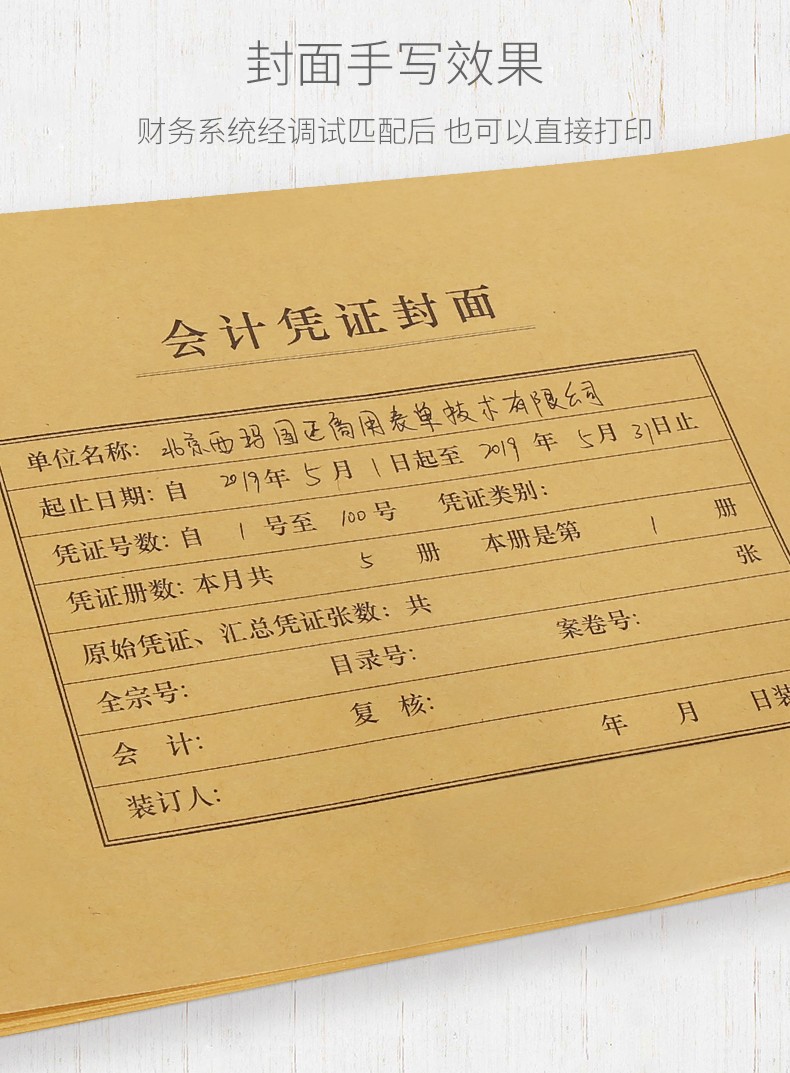 封面手写效果
财务系统经调试匹配后 也可以直接打印
会计凭证封面
单位名称: 北京西玛国正商用表单技术有限公司
起止日期: 自 2019年 5月 1日起至 2019年 5月 31日止
凭证号数: 自 1 号至 100号 凭证类别:
凭证册数: 本月共 5 册 本册是第 1 册
原始凭证、汇总凭证张数: 共 张
全宗号: 目录号: 案卷号:
会 计: 复 核:
装订人: 年 月 日装